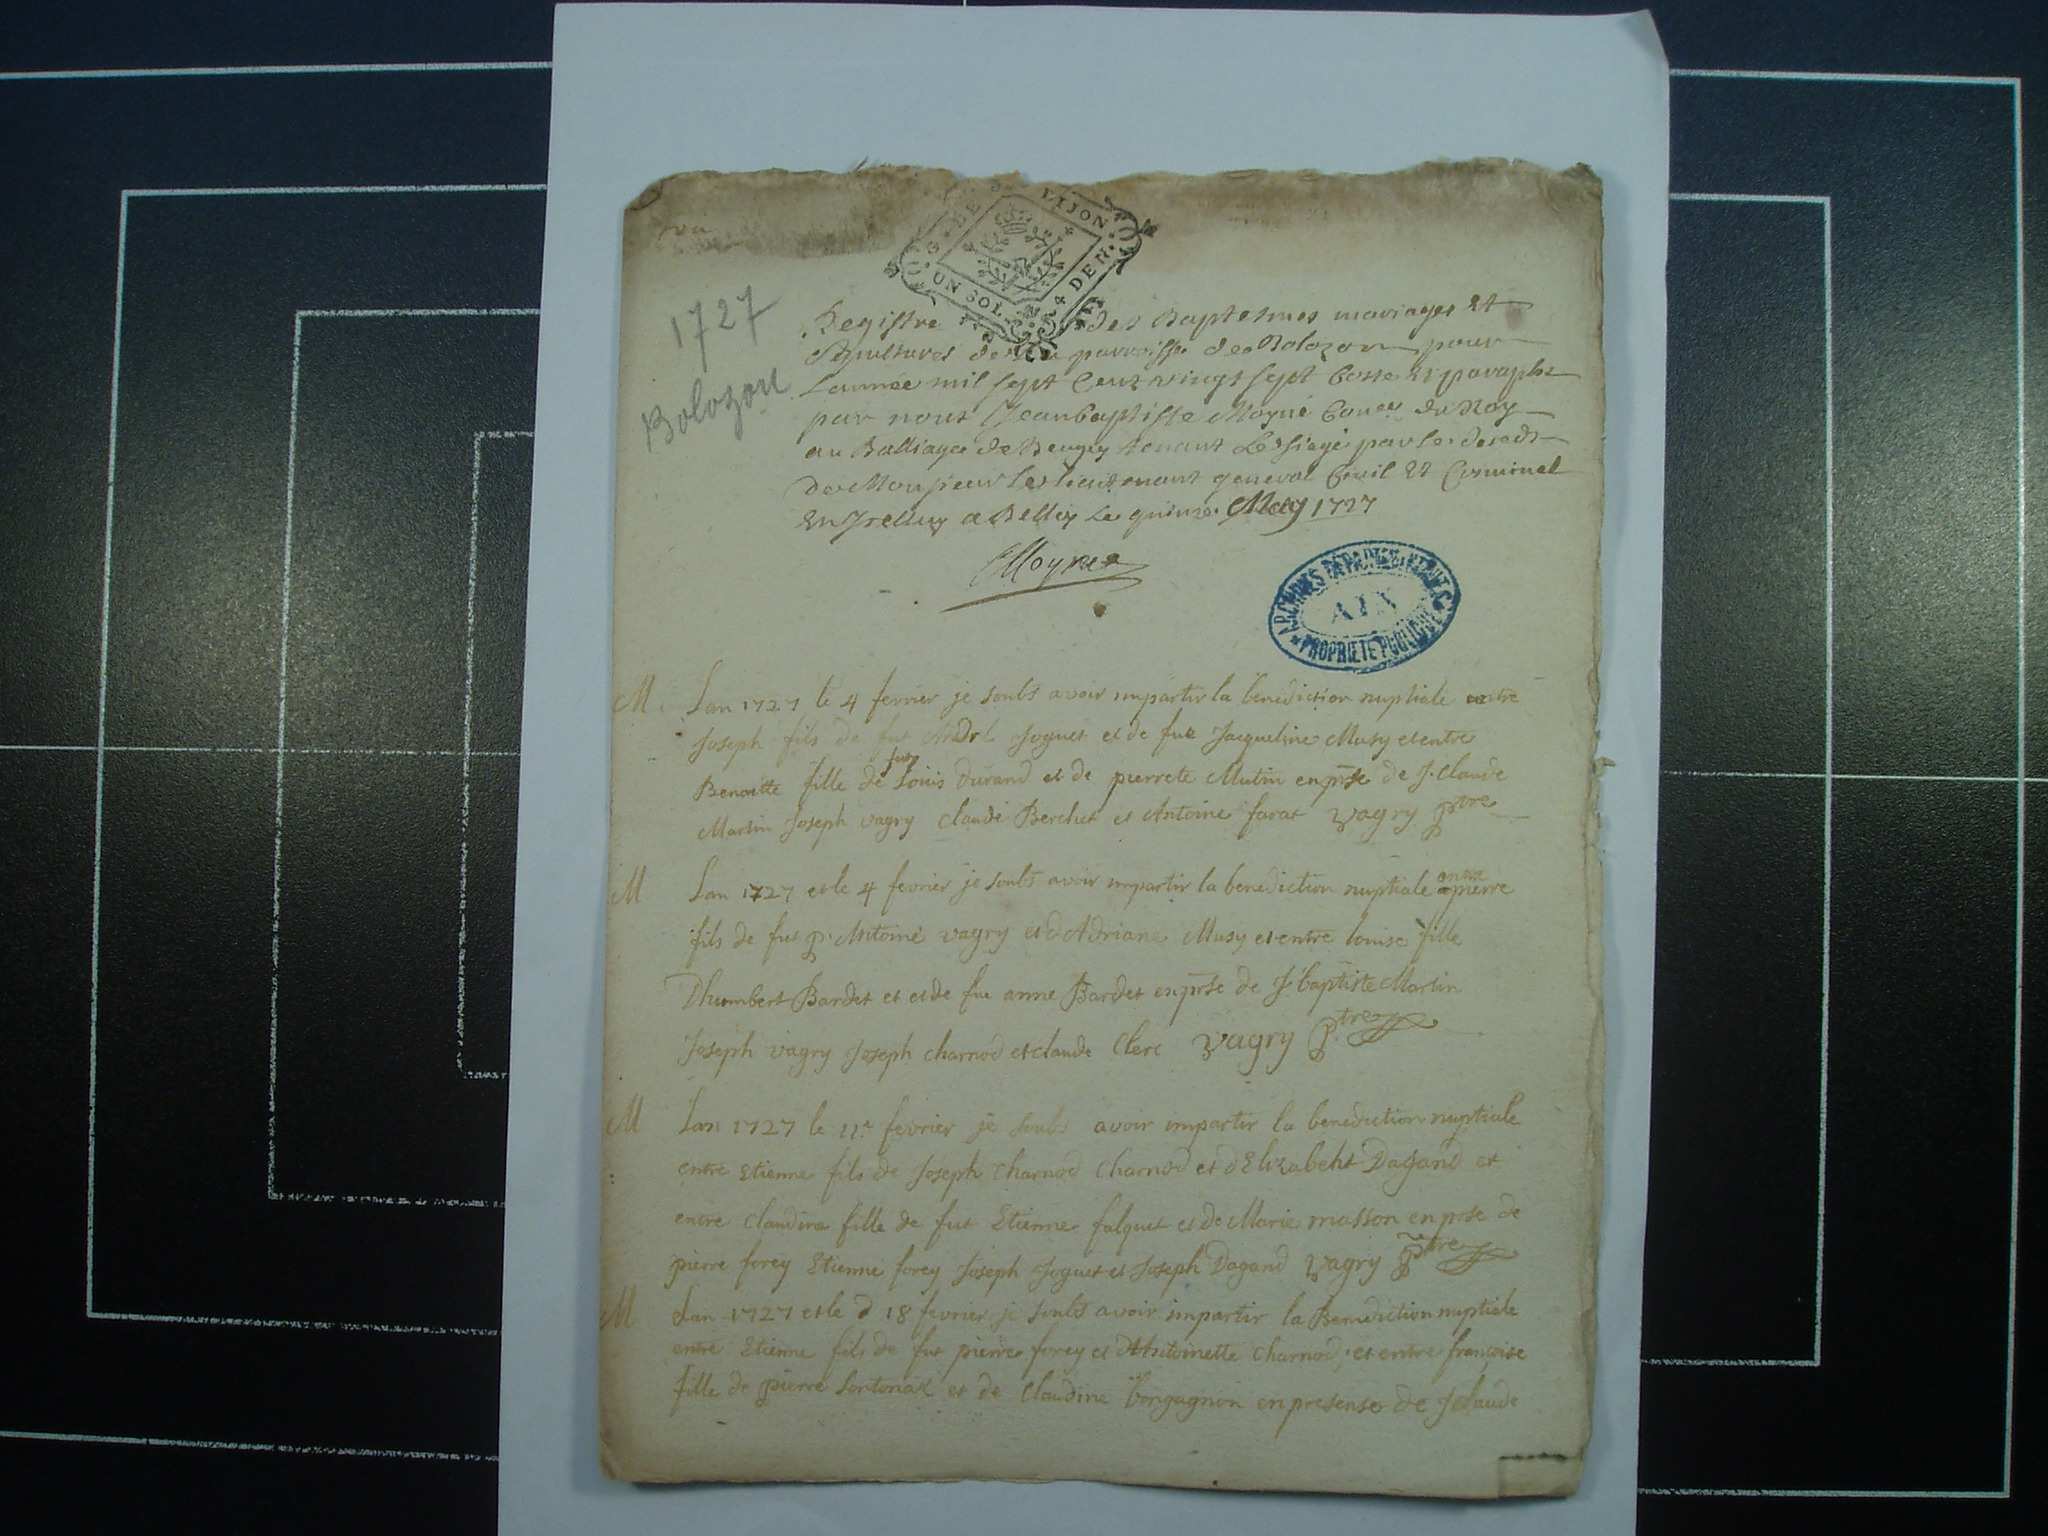 G. DE DIJON
UN SOL 4 DEN.
1727
Bolozon
Registre des Baptesmes mariages et
Sepultures de la parroisse de Bolozon pour
Lannée mil sept Cent vingt sept Cotte et paraphe
par nous Jean baptiste Moyne Coner du Roy
au Balliage de Beugey tenant Le siege par le deceds
de Monsieur Le lieutenant general Civil et Criminel
a Belley Le quinze May 1727
Moyne
ARCHIVES DÉPARTEMENTALES
AIN
PROPRIÉTÉ PUBLIQUE
M Lan 1727 le 4 fevrier je soubs avoir impartir la benediction nuptiale entre
Joseph fils de fut Andre Joguet et de fue Jacqueline Musy et entre
fut
Benoitte fille de Louis Durand et de pierrete Mutin en prse de J. Claude
Martin Joseph vagry claude Berchet et Antoine farat vagry ptre
M Lan 1727 et le 4 fevrier je soubs avoir impartir la benediction nuptiale entre pierre
fils de fut p. Antoine vagry et d Adriane Musy et entre louise fille
Dhumbert Bardet et et de fue anne Bardet en prse de J baptiste Martin
Joseph vagry Joseph charnod et claude Clerc vagry Ptre
M Lan 1727 le 11e fevrier je soubs avoir impartir la benediction nuptiale
entre Etienne fils de Joseph Charnod Charnod et d Elizabeht Dagand et
entre Claudine fille de fut Etienne falquet et de Marie masson en prse de
pierre forey Etienne forey Joseph Joguet et Joseph Dagand vagry Ptre
M Lan 1727 et le d 18 fevrier je soubs avoir impartir la Benediction nuptiale
entre Etienne fils de fut pierre forey et dAntoinette Charnod, et entre françoise
fille de pierre et de Claudine borgagnon en presense de J claude